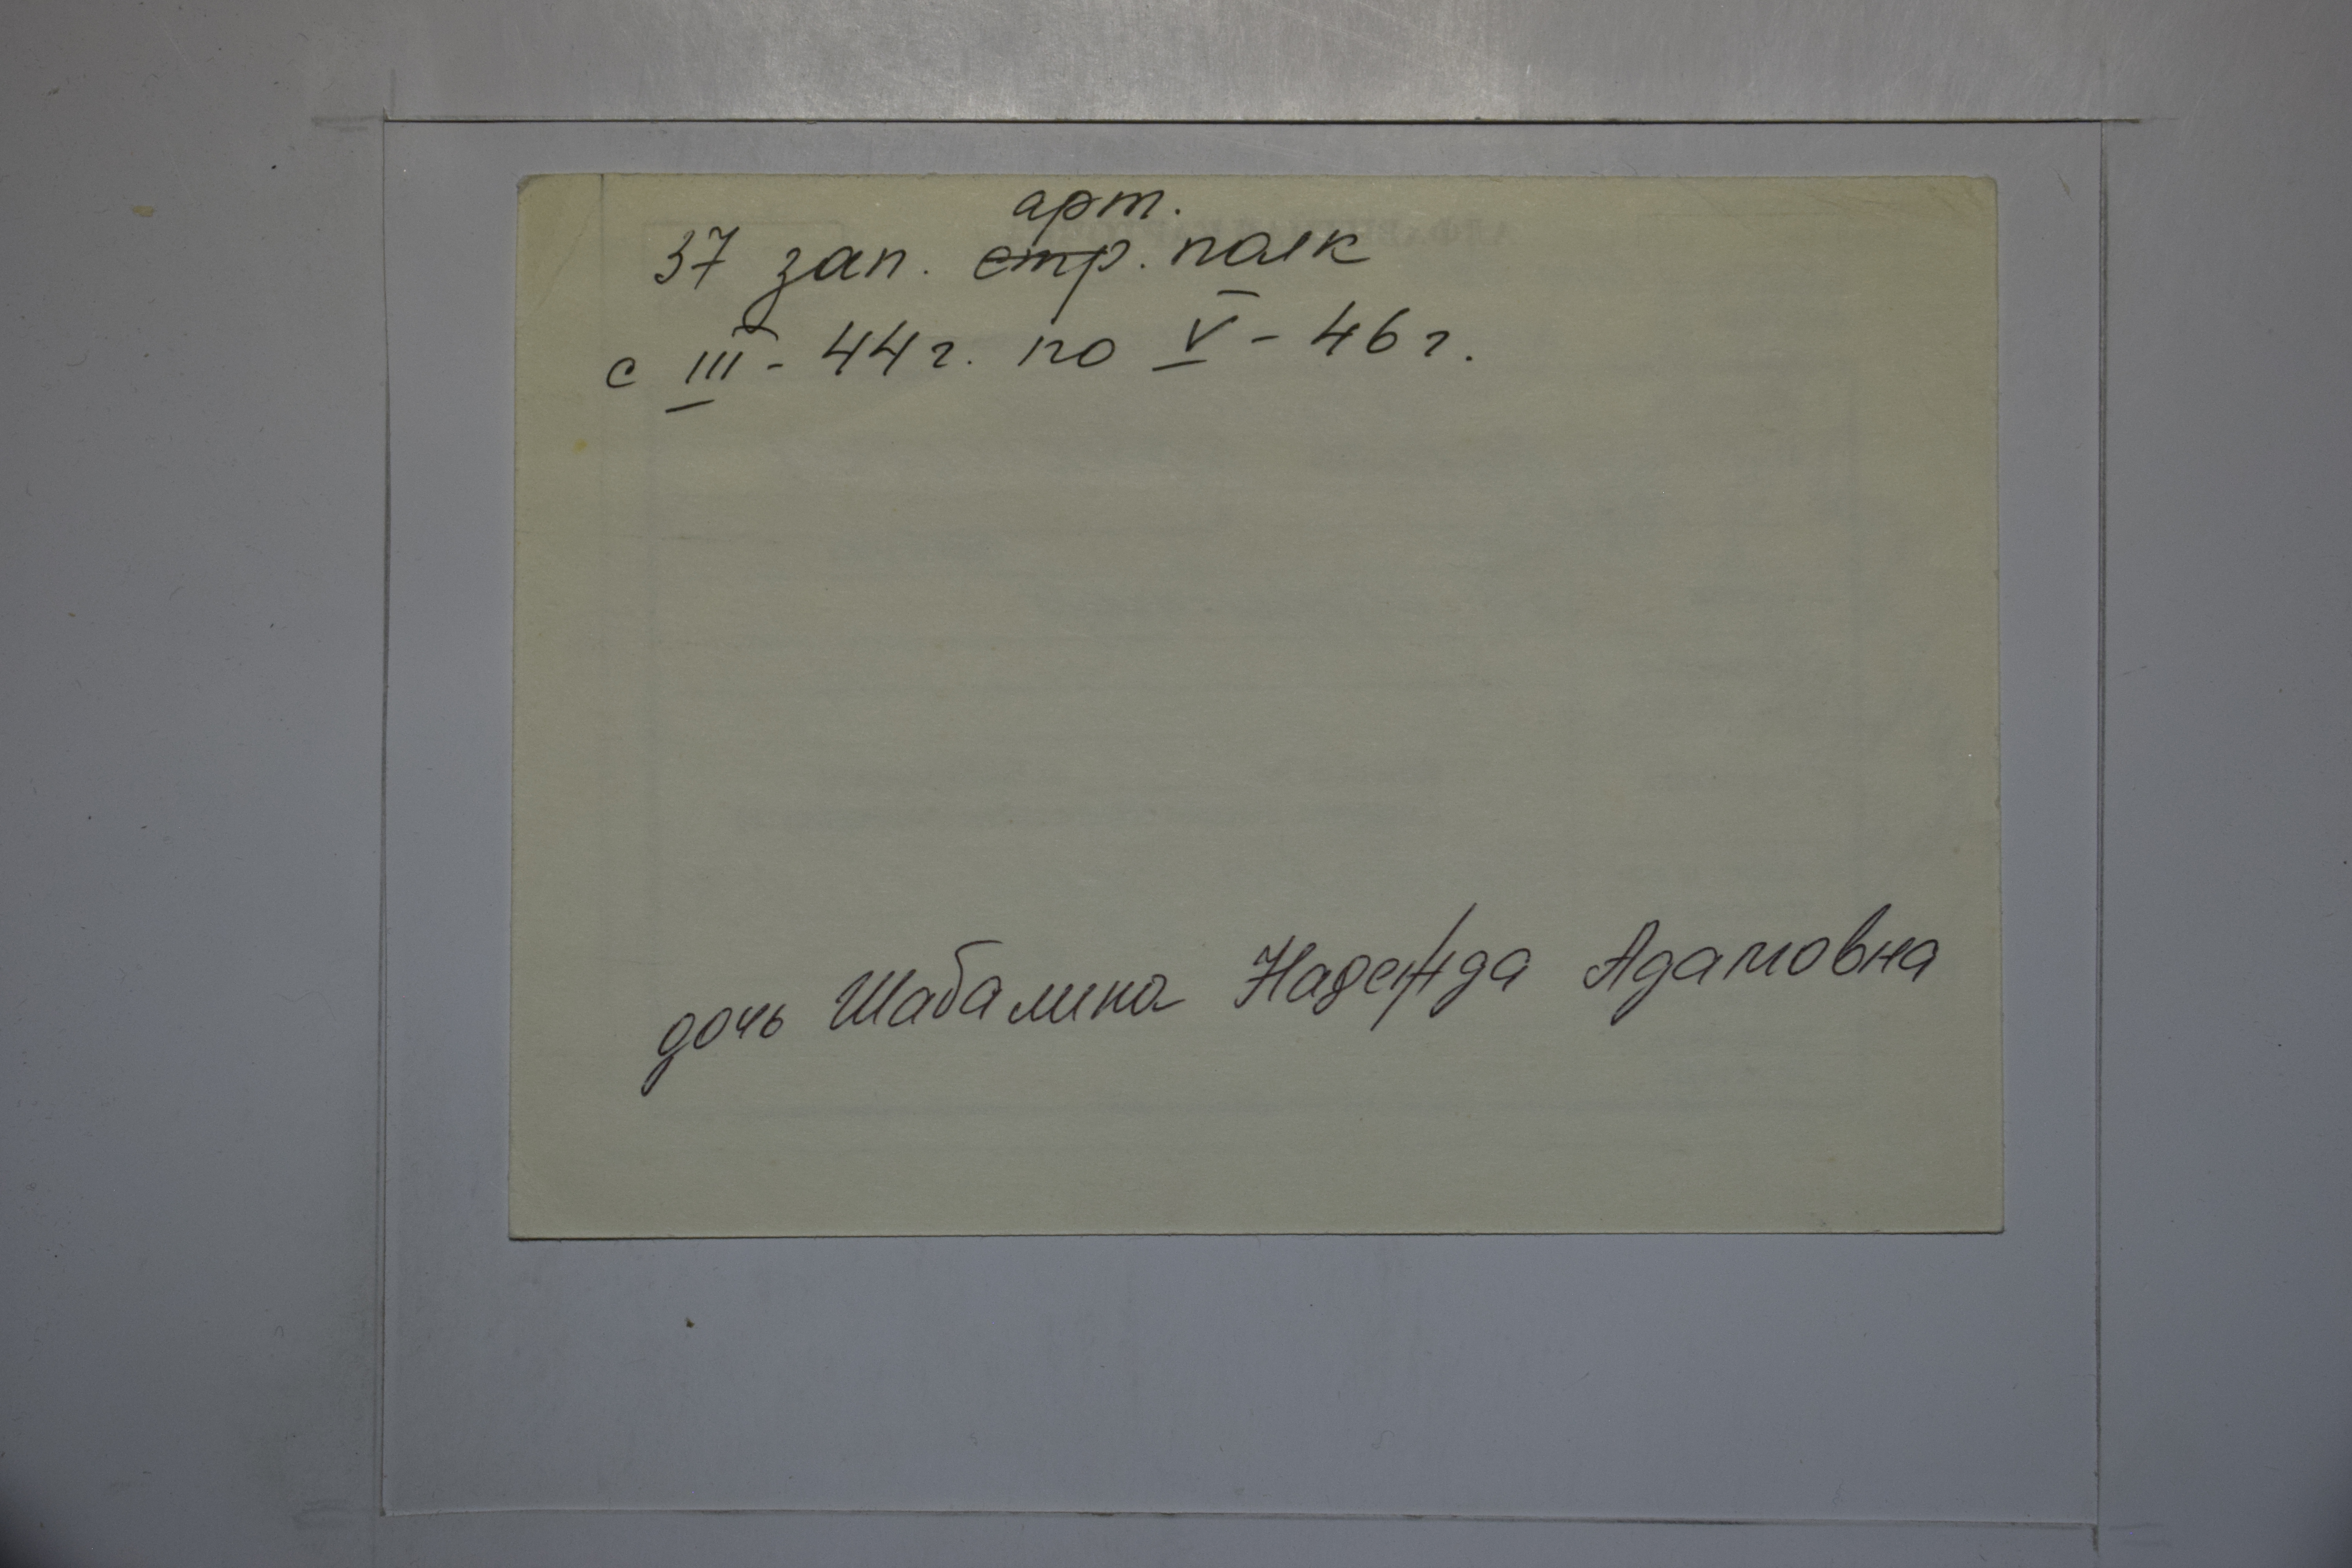 арт.
37 зап. стр. полк
с III - 44 г. по V - 46 г.
дочь Шабалина Надежда Адамовна